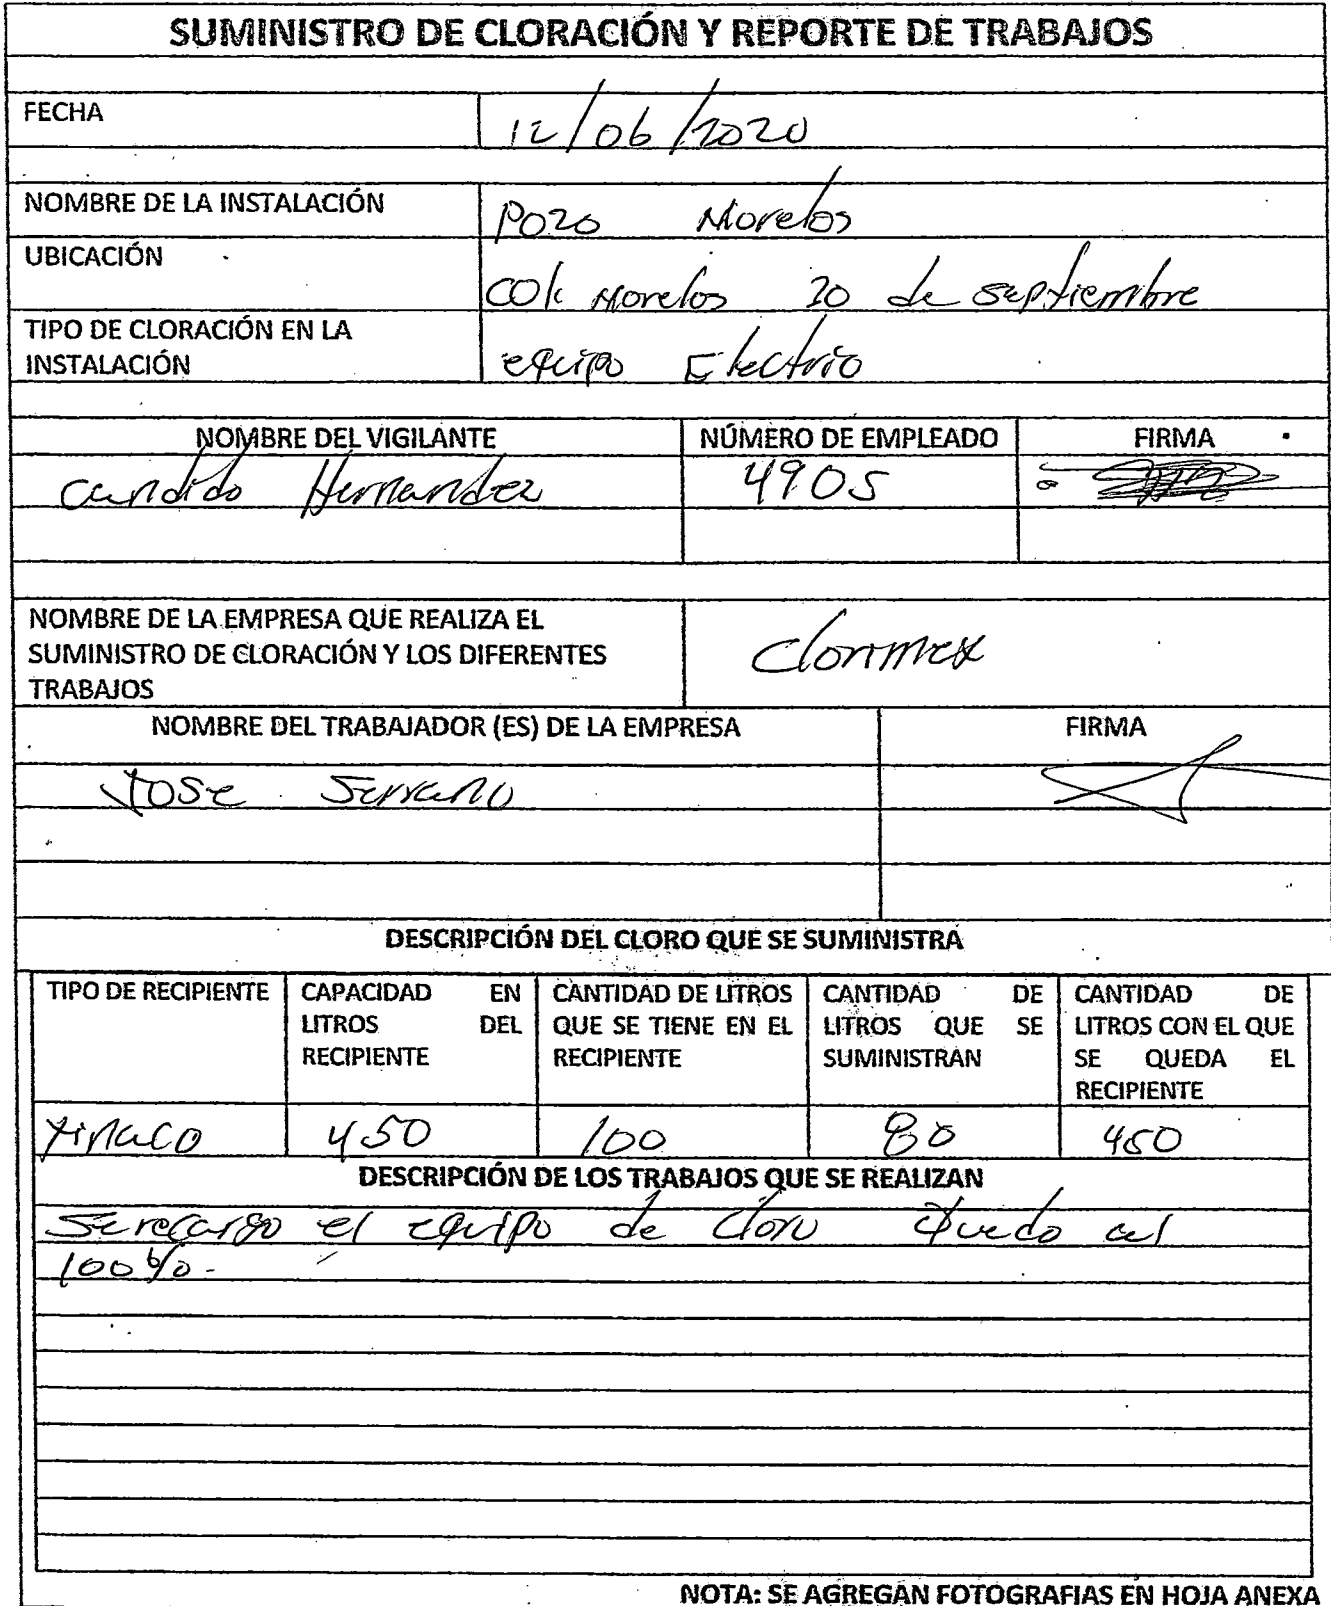 SUMINISTRO DE CLORACIÓN Y REPORTE DE TRABAJOS
FECHA 12/06/2020
NOMBRE DE LA INSTALACIÓN Pozo Morelos
UBICACIÓN Col. Morelos 20 de septiembre
TIPO DE CLORACIÓN EN LA INSTALACIÓN equipo Electrio
NOMBRE DEL VIGILANTE NÚMERO DE EMPLEADO FIRMA
Candido Hernandez 4905
NOMBRE DE LA EMPRESA QUE REALIZA EL
SUMINISTRO DE CLORACIÓN Y LOS DIFERENTES
TRABAJOS
Clorimex
NOMBRE DEL TRABAJADOR (ES) DE LA EMPRESA FIRMA
Jose Serrano
DESCRIPCIÓN DEL CLORO QUE SE SUMINISTRA
TIPO DE RECIPIENTE
CAPACIDAD EN LITROS DEL RECIPIENTE
CANTIDAD DE LITROS QUE SE TIENE EN EL RECIPIENTE
CANTIDAD DE LITROS QUE SE SUMINISTRAN
CANTIDAD DE LITROS CON EL QUE SE QUEDA EL RECIPIENTE
tinaco 450 100 80 450
DESCRIPCIÓN DE LOS TRABAJOS QUE SE REALIZAN
Se recargo el equipo de cloro quedo al
100%.
NOTA: SE AGREGAN FOTOGRAFIAS EN HOJA ANEXA